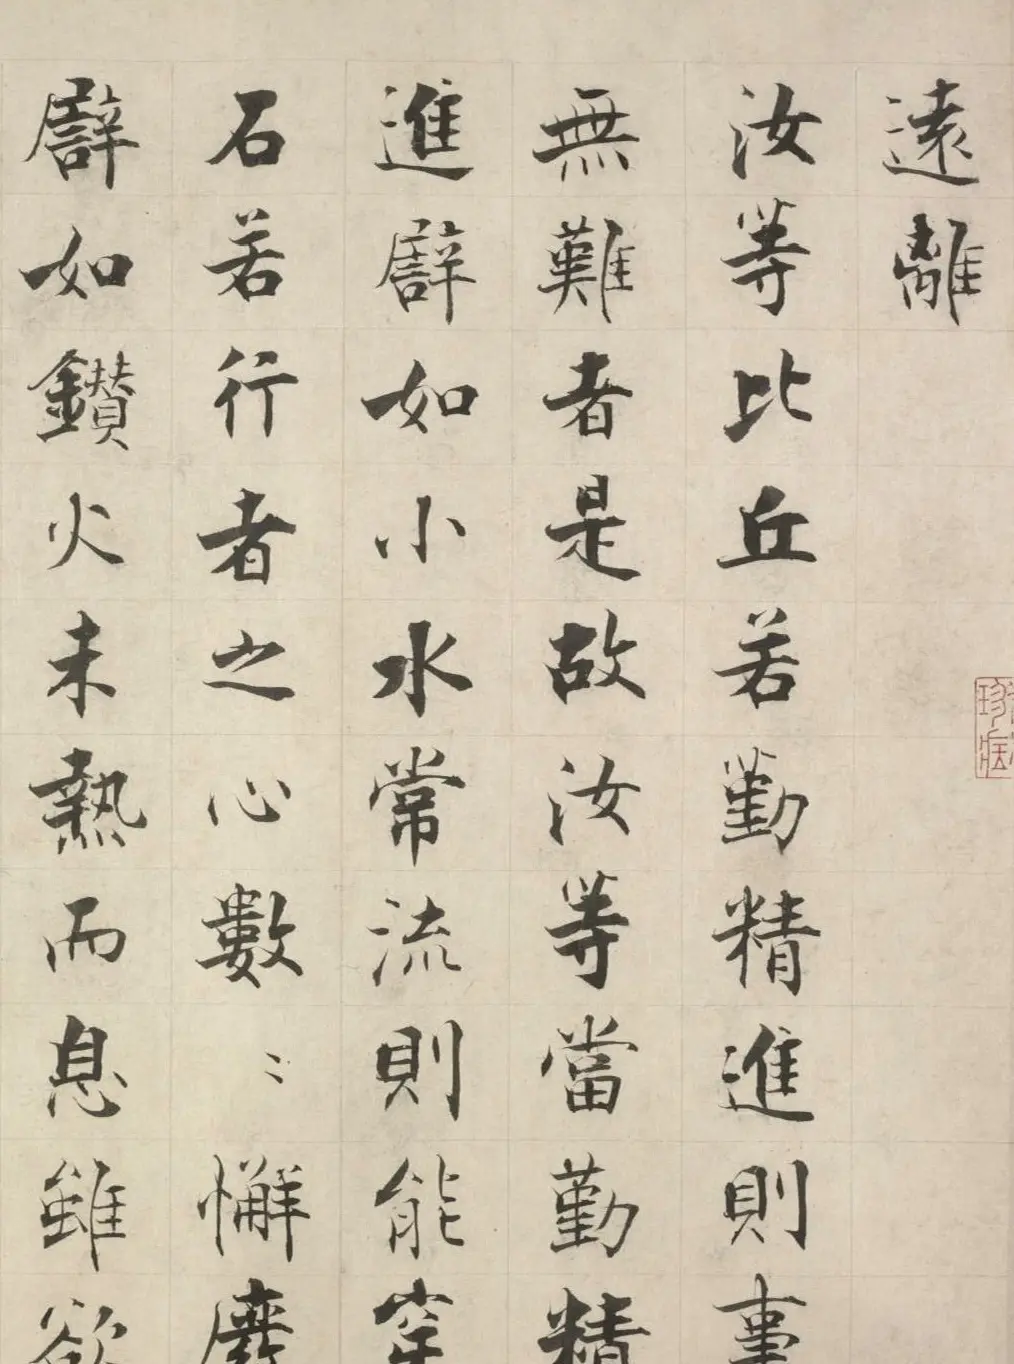 遠離
汝等比丘若勤精進則事
無難者是故汝等當勤精
進譬如小水常流則能穿
石若行者之心數〻懈廢
譬如鑚火未熱而息雖欲